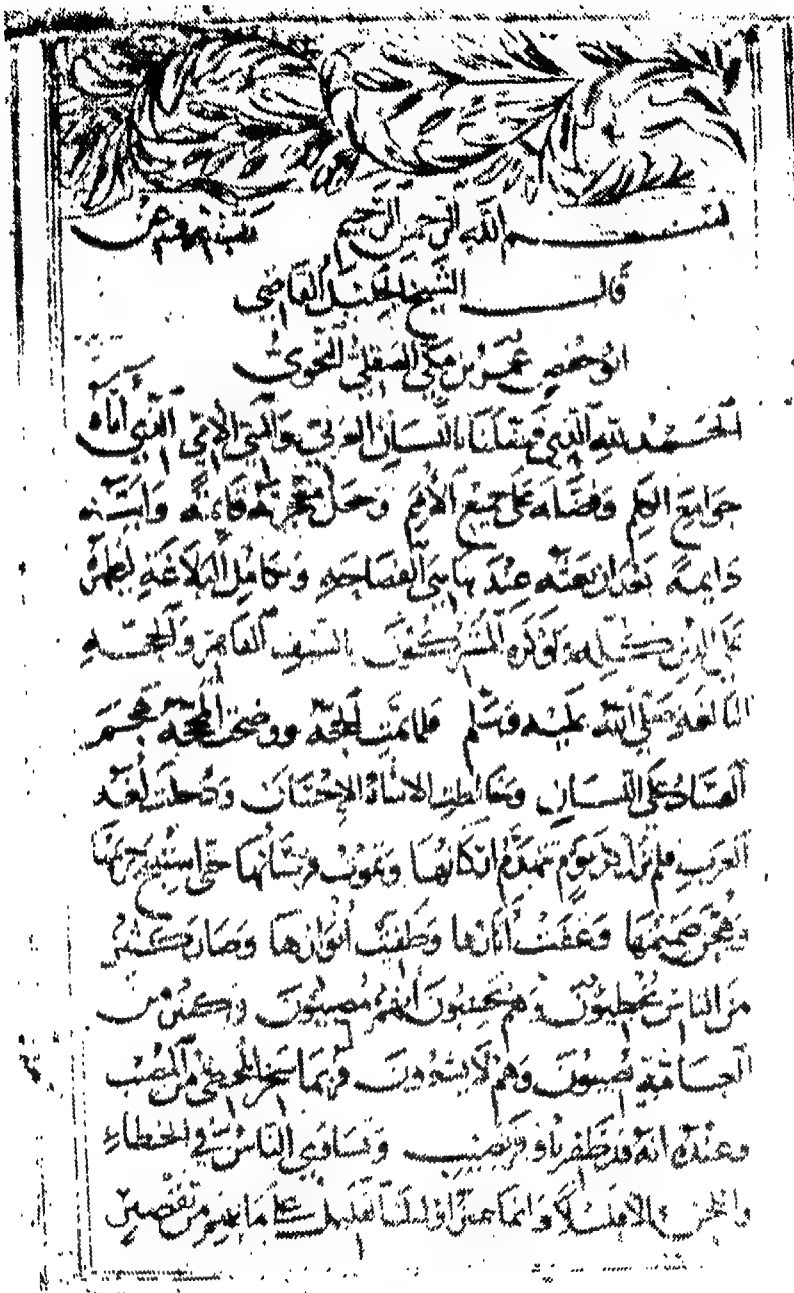 بسم الله الرحمن الرحيم
قال الشيخ الجليل القاضي
ابو حفص عمر بن مكي الصقلي النحوي
الحمد لله الذي فضلنا باللسان العربي والنبي الامي الذي اتاه
جوامع الكلم وفضله على جميع الامم وجعل معجزته قائمة وايته
دايمة بعثه عند تناهي الفصاحة وتكامل البلاغة ليظهره
على الدين كله ولو كره المشركون بالسيف القاهر والحجة
البالغة صلى الله عليه وسلم فلما تمت الحجة ووضحت المحجة هجم
الفساد على اللسان وخالطت الاساءة الاحسان ودخلت لغة
العرب فلم تزل كل يوم تنهدم اركانها وتموت فرسانها حتى استبيح حريمها
وهجن صميمها وعفت اثارها وطفيت انوارها وصار كثير
من الناس يخطئون وهم يحسبون انهم مصيبون وكثير من
العامة يصيبون وهم لا يشعرون فربما سخر المخطئ من المصيب
وعنده انه قد ظفر باوفر نصيب وتساوى الناس في الخطاء
واللحن الا قليلا وانما يتميز اولئك القليل من تقصير